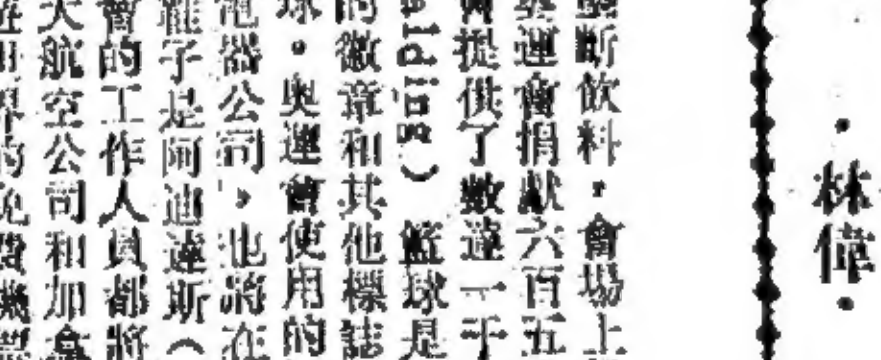 ·林偉·
斷飲料，會場上
運會捐獻六百五
會提供了數達一千
alding）籃球是
的徽章和其他標誌
球。奧運會使用的
電器公司，也將在
鞋子是阿迪達斯（
會的工作人員都將
天航空公司和加拿
世界的免費機票